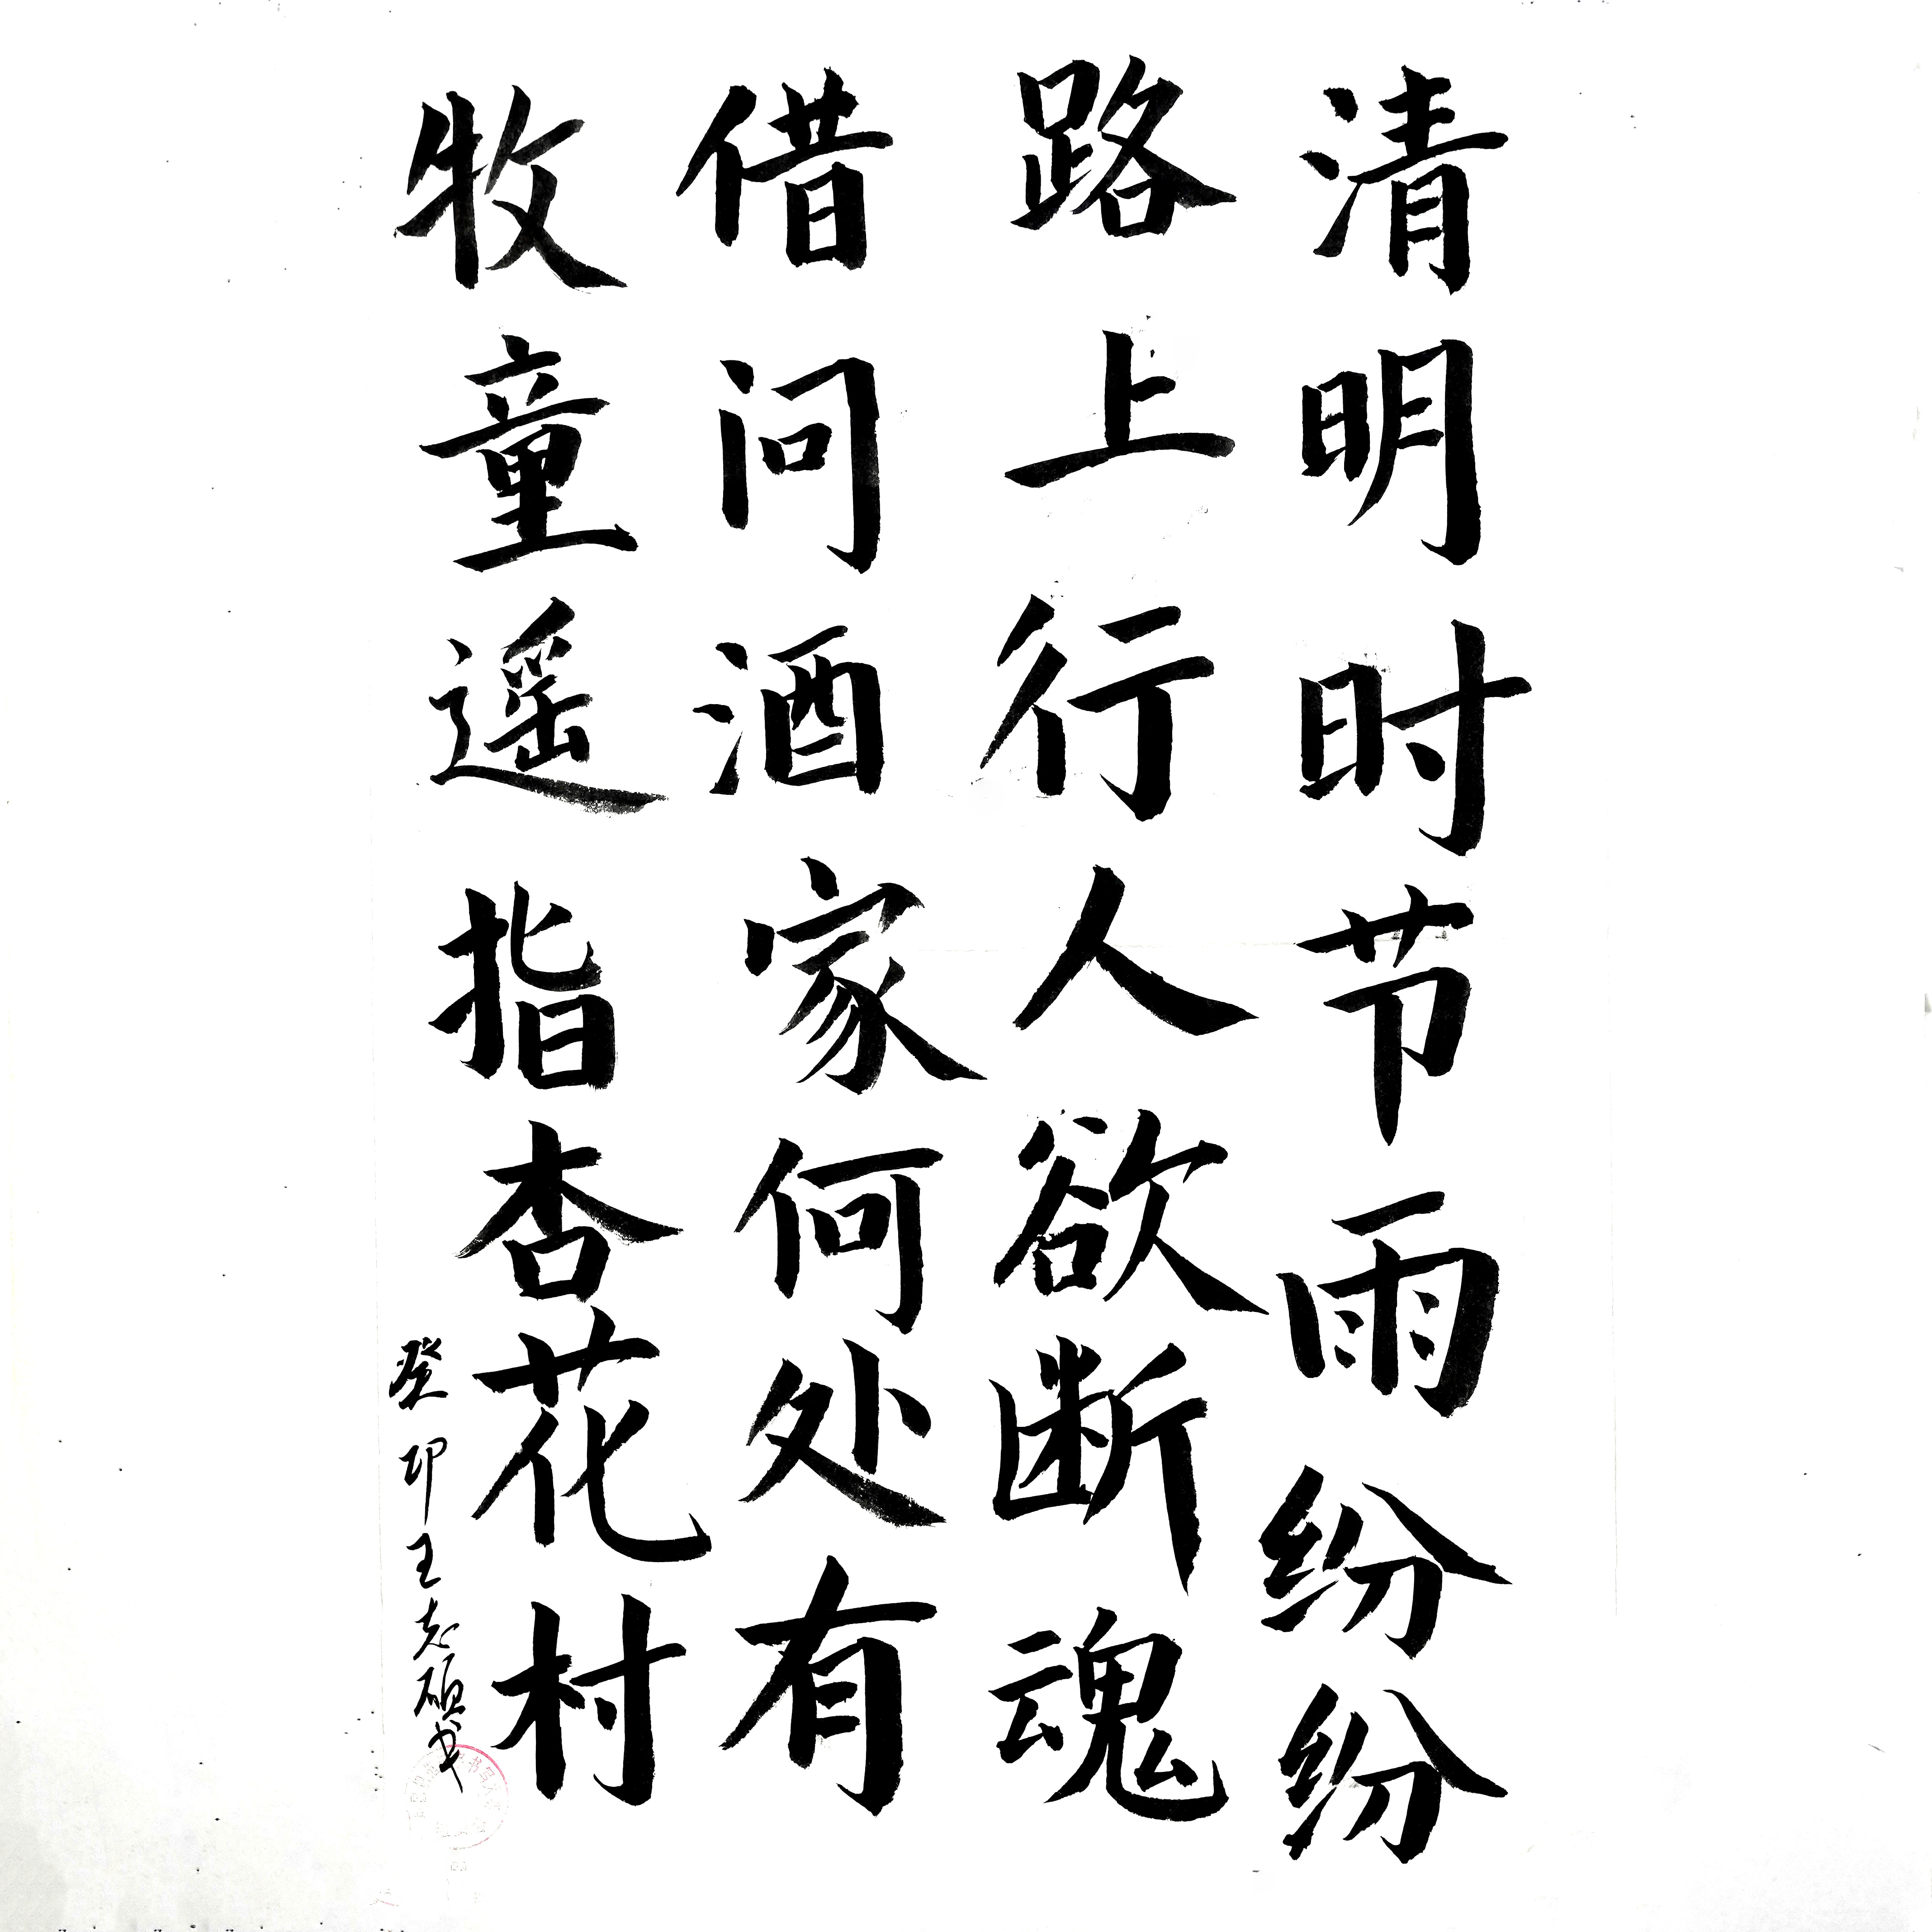 清明时节雨纷纷
路上行人欲断魂
借问酒家何处有
牧童遥指杏花村
癸卯王志硕书